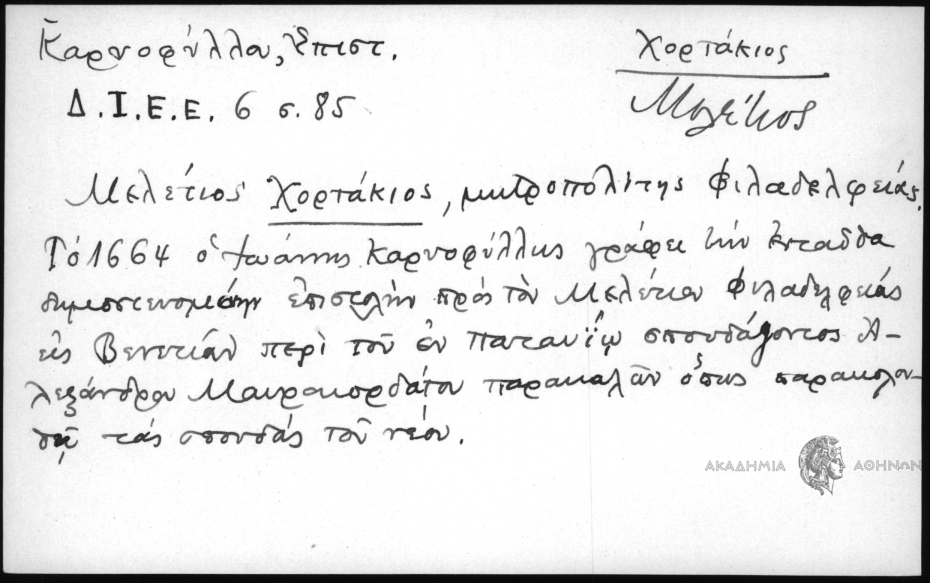 Καρυοφύλλου, Ἐπιστ.
Χορτάκιος
Μελέτιος
Δ.Ι.Ε.Ε. 6 σ. 85
Μελέτιος Χορτάκιος, μητροπολίτης Φιλαδελφείας.
Τό 1664 ὁ Ἰωάννης Καρυοφύλλης γράφει τήν ἐνταῦθα
δημοσιευομένην ἐπιστολήν πρός τὸν Μελέτιον Φιλαδελφείας
εἰς Βενετίαν περὶ τοῦ ἐν Παταυΐῳ σπουδάζοντος Ἀ-
λεξάνδρου Μαυροκορδάτου παρακαλῶν ὅπως παρακολου-
θῇ τάς σπουδάς τοῦ νέου.
ΑΚΑΔΗΜΙΑ ΑΘΗΝΩΝ